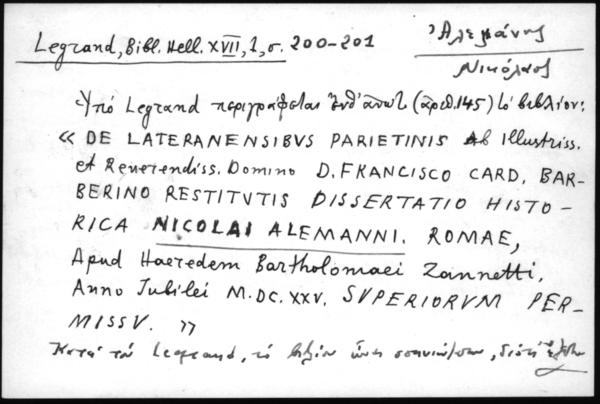 Legrand, Bibl. Hell. XVII, 1, σ. 200-201
Ἀλεμάννης
Νικόλαος
Ὑπό Legrand περιγράφεται ἐνθ' ἀνωτ. (ἀριθ. 145) τό βιβλίον:
« DE LATERANENSIBVS PARIETINIS Ab Illustriss.
et Reverendiss. Domino D. FRANCISCO CARD. BAR-
BERINO RESTITVTIS DISSERTATIO HISTO-
RICA NICOLAI ALEMANNI. ROMAE,
Apud Haeredem Bartholomaei Zannetti.
Anno Jubilei M.DC.XXV. SVPERIORVM PER-
MISSV. »
Κατά τόν Legrand, τό βιβλίον διότι